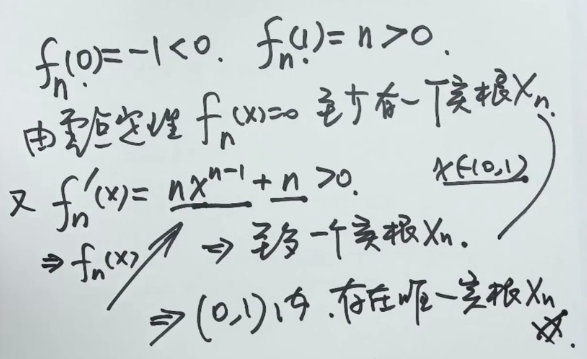 fₙ(0)=-1<0. fₙ(1)=n>0.
由零点定理 fₙ(x)=0 至少有一个实根Xₙ.
又 fₙ′(x)= nxⁿ⁻¹+n >0. x∈(0,1)
⇒ fₙ(x)↗ ⇒ 至多一个实根Xₙ.
⇒ (0,1)内.存在唯一实根Xₙ